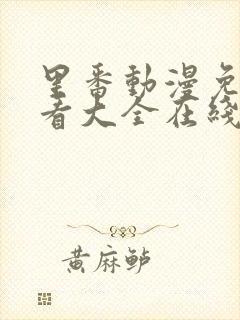 里番動漫免
看大全在綫
黄麻鲈